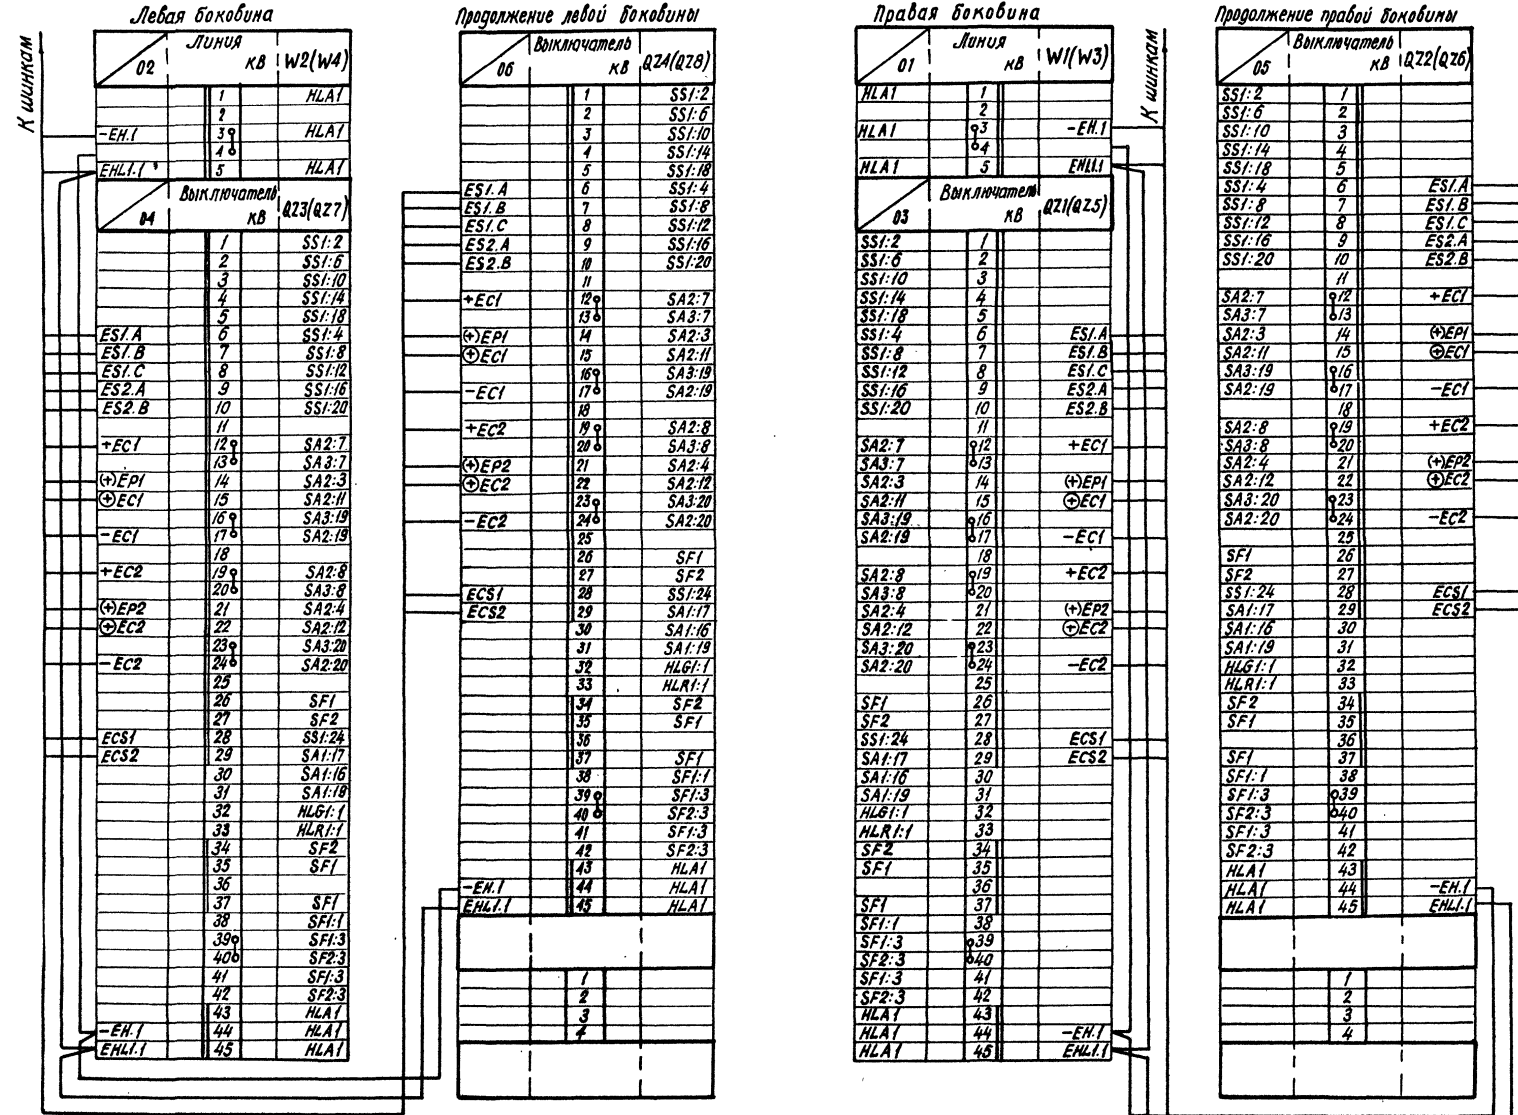 Левая боковина
К шинкам
02 Линия кВ W2(W4)
1 HLA1
2
-EH.1 3 HLA1
4
EHL1.1 5 HLA1
04 Выключатель кВ QZ3(QZ7)
1 SS1:2
2 SS1:6
3 SS1:10
4 SS1:14
5 SS1:18
ES1.A 6 SS1:4
ES1.B 7 SS1:8
ES1.C 8 SS1:12
ES2.A 9 SS1:16
ES2.B 10 SS1:20
11
+EC1 12 SA2:7
13 SA3:7
(+)EP1 14 SA2:3
⊕EC1 15 SA2:11
16 SA3:19
-EC1 17 SA2:19
18
+EC2 19 SA2:8
20 SA3:8
(+)EP2 21 SA2:4
⊕EC2 22 SA2:12
23 SA3:20
-EC2 24 SA2:20
25
26 SF1
27 SF2
ECS1 28 SS1:24
ECS2 29 SA1:17
30 SA1:16
31 SA1:19
32 HLG1:1
33 HLR1:1
34 SF2
35 SF1
36
37 SF1
38 SF1:1
39 SF1:3
40 SF2:3
41 SF1:3
42 SF2:3
43 HLA1
-EH.1 44 HLA1
EHL1.1 45 HLA1
Продолжение левой боковины
06 Выключатель кВ QZ4(QZ8)
1 SS1:2
2 SS1:6
3 SS1:10
4 SS1:14
5 SS1:18
ES1.A 6 SS1:4
ES1.B 7 SS1:8
ES1.C 8 SS1:12
ES2.A 9 SS1:16
ES2.B 10 SS1:20
11
+EC1 12 SA2:7
13 SA3:7
(+)EP1 14 SA2:3
⊕EC1 15 SA2:11
16 SA3:19
-EC1 17 SA2:19
18
+EC2 19 SA2:8
20 SA3:8
(+)EP2 21 SA2:4
⊕EC2 22 SA2:12
23 SA3:20
-EC2 24 SA2:20
25
26 SF1
27 SF2
ECS1 28 SS1:24
ECS2 29 SA1:17
30 SA1:16
31 SA1:19
32 HLG1:1
33 HLR1:1
34 SF2
35 SF1
36
37 SF1
38 SF1:1
39 SF1:3
40 SF2:3
41 SF1:3
42 SF2:3
43 HLA1
-EH.1 44 HLA1
EHL1.1 45 HLA1
1
2
3
4
Правая боковина
К шинкам
01 Линия кВ W1(W3)
HLA1 1
2
HLA1 3 -EH.1
4
HLA1 5 EHL1.1
03 Выключатель кВ QZ1(QZ5)
SS1:2 1
SS1:6 2
SS1:10 3
SS1:14 4
SS1:18 5
SS1:4 6 ES1.A
SS1:8 7 ES1.B
SS1:12 8 ES1.C
SS1:16 9 ES2.A
SS1:20 10 ES2.B
11
SA2:7 12 +EC1
SA3:7 13
SA2:3 14 (+)EP1
SA2:11 15 ⊕EC1
SA3:19 16
SA2:19 17 -EC1
18
SA2:8 19 +EC2
SA3:8 20
SA2:4 21 (+)EP2
SA2:12 22 ⊕EC2
SA3:20 23
SA2:20 24 -EC2
25
SF1 26
SF2 27
SS1:24 28 ECS1
SA1:17 29 ECS2
SA1:16 30
SA1:19 31
HLG1:1 32
HLR1:1 33
SF2 34
SF1 35
36
SF1 37
SF1:1 38
SF1:3 39
SF2:3 40
SF1:3 41
SF2:3 42
HLA1 43
HLA1 44 -EH.1
HLA1 45 EHL1.1
Продолжение правой боковины
05 Выключатель кВ QZ2(QZ6)
SS1:2 1
SS1:6 2
SS1:10 3
SS1:14 4
SS1:18 5
SS1:4 6 ES1.A
SS1:8 7 ES1.B
SS1:12 8 ES1.C
SS1:16 9 ES2.A
SS1:20 10 ES2.B
11
SA2:7 12 +EC1
SA3:7 13
SA2:3 14 (+)EP1
SA2:11 15 ⊕EC1
SA3:19 16
SA2:19 17 -EC1
18
SA2:8 19 +EC2
SA3:8 20
SA2:4 21 (+)EP2
SA2:12 22 ⊕EC2
SA3:20 23
SA2:20 24 -EC2
25
SF1 26
SF2 27
SS1:24 28 ECS1
SA1:17 29 ECS2
SA1:16 30
SA1:19 31
HLG1:1 32
HLR1:1 33
SF2 34
SF1 35
36
SF1 37
SF1:1 38
SF1:3 39
SF2:3 40
SF1:3 41
SF2:3 42
HLA1 43
HLA1 44 -EH.1
HLA1 45 EHL1.1
1
2
3
4